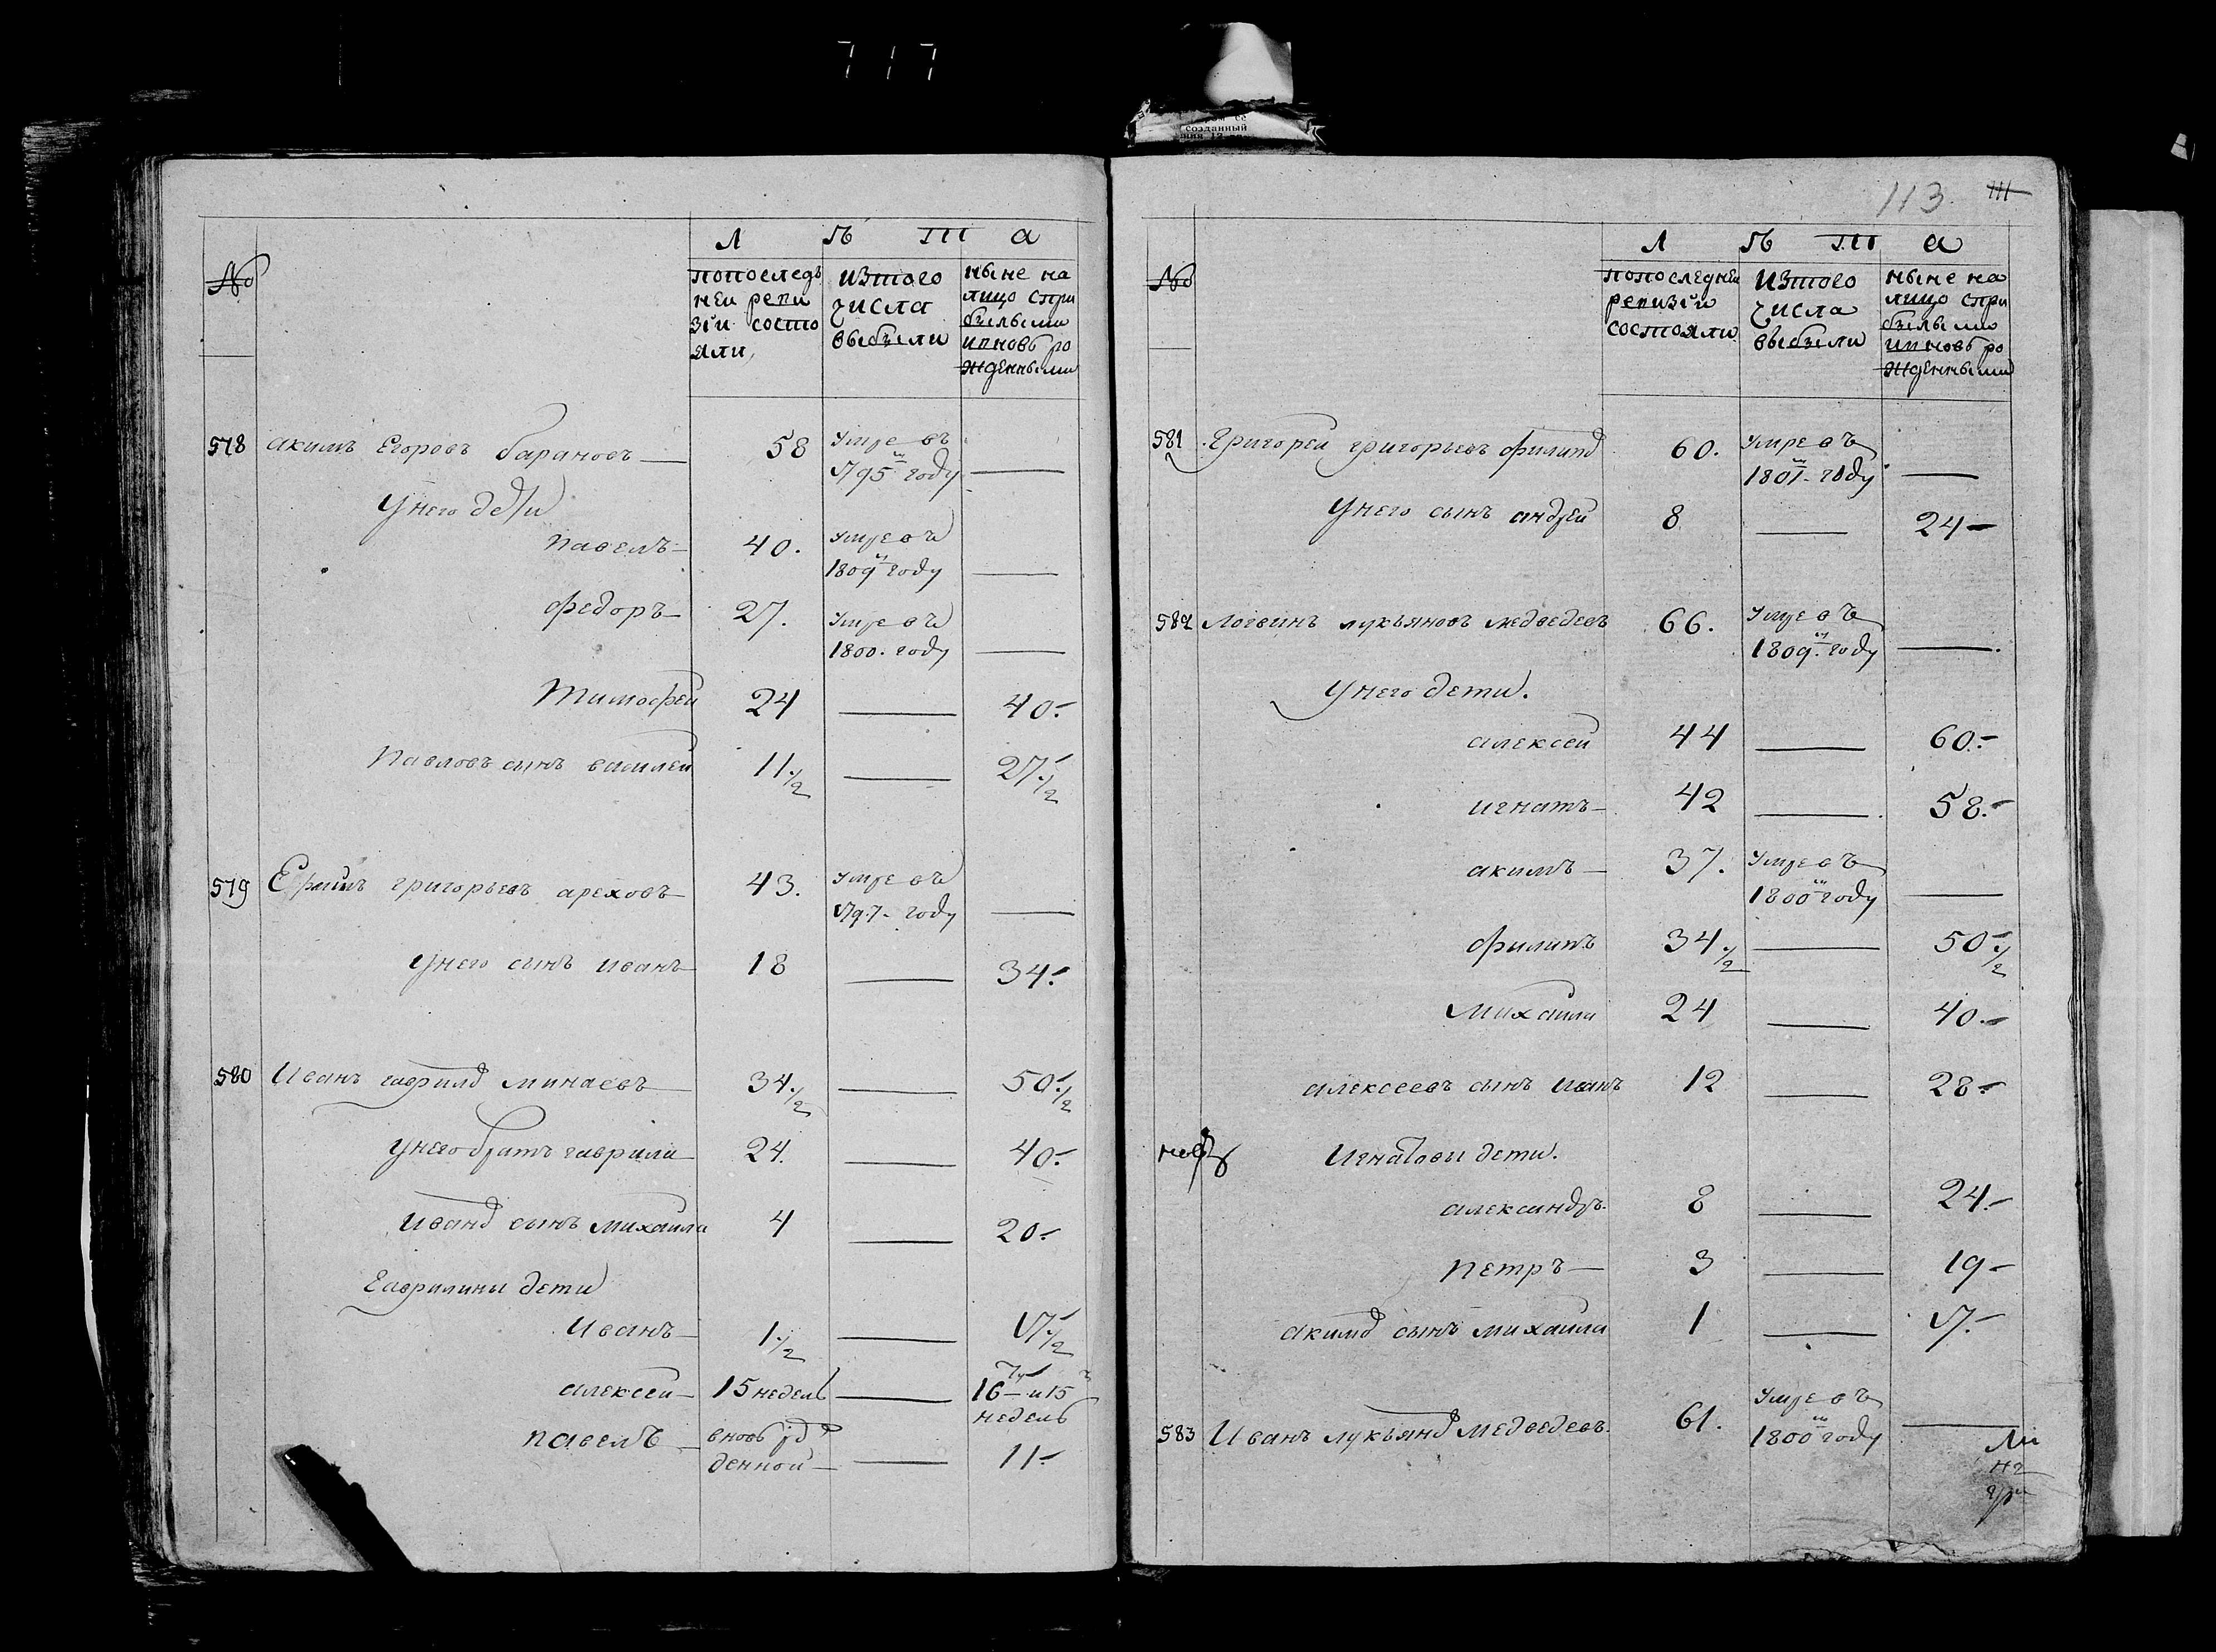 717
созданный
№
Л Ѣ Т а
попоследъ
ней реви
зіи состо
яли
изтого
числа
выбыли
ныне на
лицо спри
былыми
ивновь ро
жденными
578 акимъ Егоровъ барановъ 58 умре въ
1795м году
Унего дети
павелъ 40. умре въ
1809м году
федоръ 27. умре въ
1800. году
Тимофей 24 40.
Павловъ сынъ василей 11 1/2 27 1/2
579 Ефимъ григорьевъ ареховъ 43. умре въ
1797 году
унего сынъ иванъ 18 34.
580 Иванъ гаврилд минаевъ 34 1/2 50 1/2
унего братъ гаврила 24. 40.
Иванд сынъ михаила 4 20.
Гаврилины дети
Иванъ 1 1/2 17 1/2
алексей 15 недель 16 и 15
недель
павелъ вновь рд
денной 11
113. 111
№
Л Ѣ Т а
попоследней
ревизіи
состояли
изтого
числа
выбыли
ныне на
лицо спри
былыми
ивновь ро
жденными
581 Григорей григорьевъ филипд 60. умре въ
1801м году
Унего сынъ андрей 8 24
582 Логвинъ лукьяновъ медведевъ 66. умре въ
1809м году
Унего дети.
алексей 44 60.
игнатъ 42 58.
акимъ 37. умре въ
1800м году
филипъ 34 1/2 50 1/2
Михаила 24 40.
алексеевъ сынъ иванъ 12 28
Игнатовы дети.
александръ. 8 24.
петръ 3 19
акимд сынъ михаила 1 17.
583 Иванъ лукьянд медведевъ. 61. умре въ
1800м году